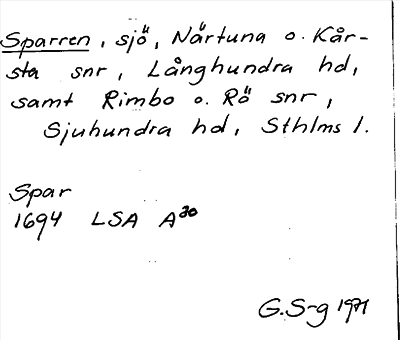 Sparren, sjö, Närtuna o. Kår-
sta snr, Långhundra hd,
samt Rimbo o. Rö snr,
Sjuhundra hd, Sthlms l.
Spar
1694 LSA A30
G.S-g 1971